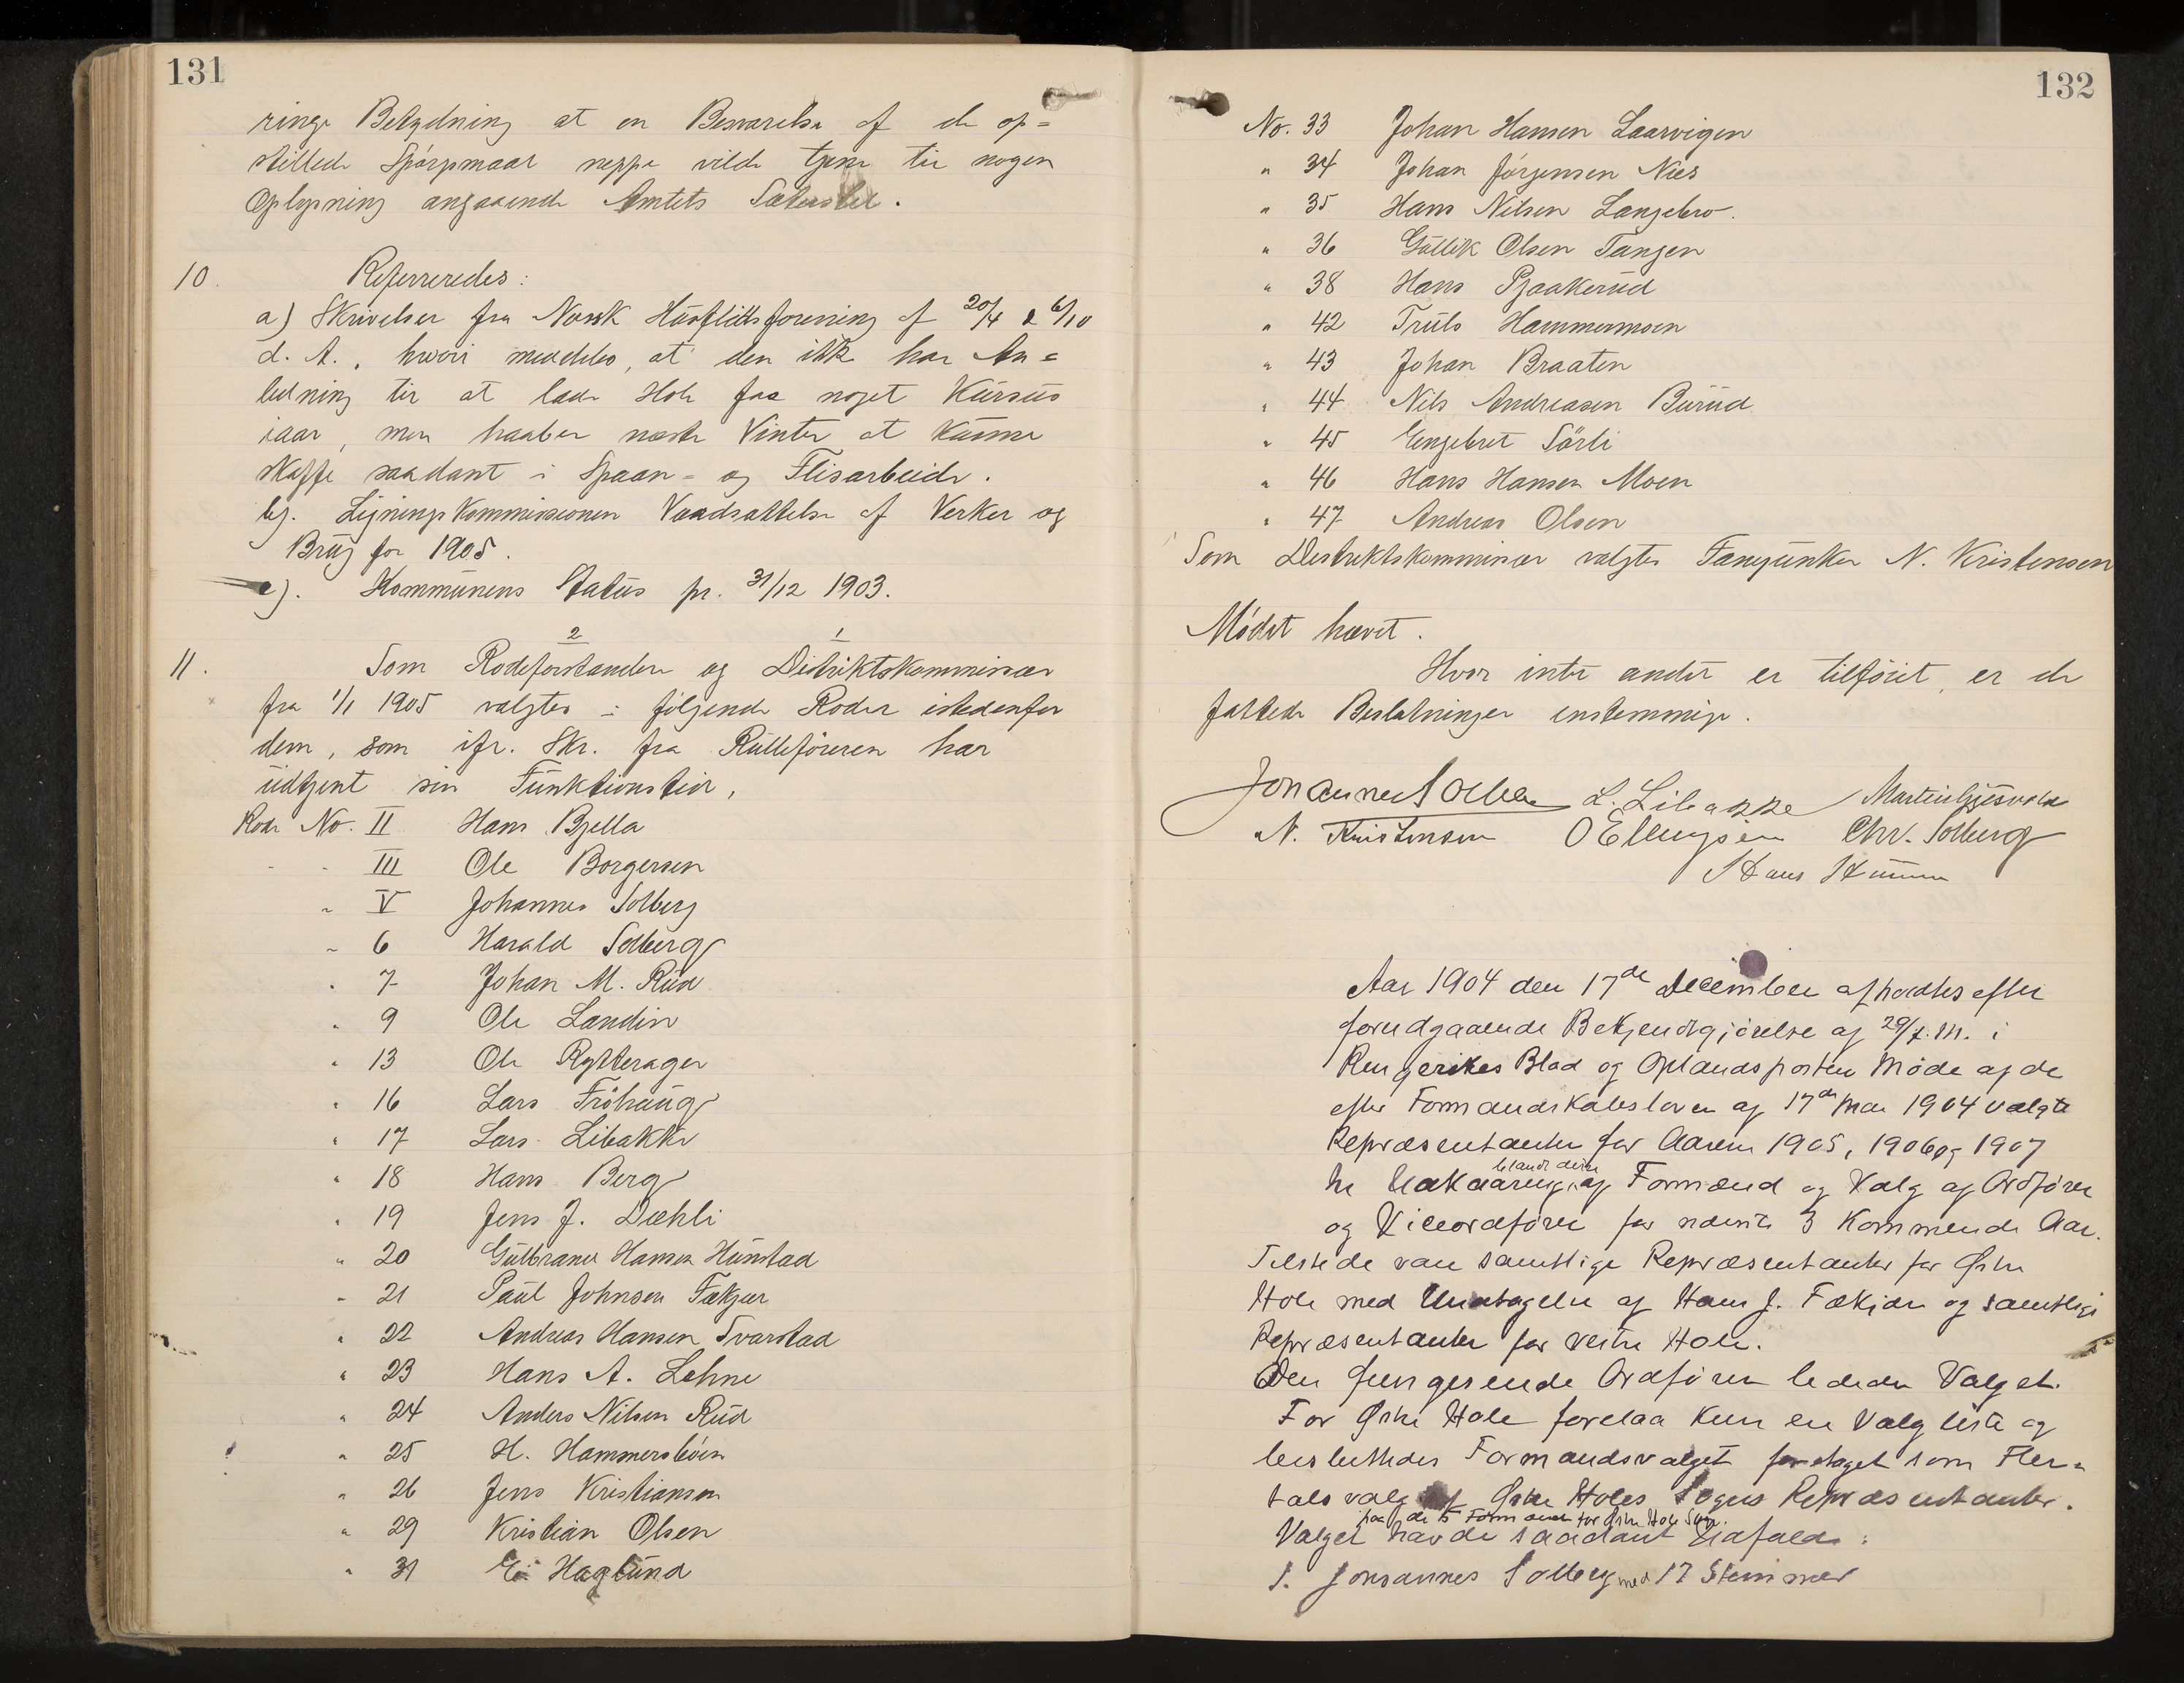 131
ringe Betydning at en Besvarelse af de op=
stillede Spörgsmaal neppe vilde tjene til nogen
Oplysning angaaende Amtets Sæterstel.
10. Refereredes:
a) Skrivelser fra Norsk Husflidsforening af 20/4 & 6/10
d. A., hvori meddeles, at den ikke har An=
ledning til at lade Hole faa noget Kursus
iaar, men haaber næste Vinter at kunne
skaffe saadant i Spaan- og Flisarbeide.
b). Ligningskommissionen Værdsættelse af Verker og
Brug for 1905.
c). Kommunens Status pr. 31/12 1903.
2 1
11. Som Rodeforstandere og Distriktskommissær
fra 1/1 1905 valgtes i følgende Roder istedenfor
dem, som ifr. Skr. fra Rulleføreren har
udtjent sin Funktionstid,
Rode No. II Hans Bjella
- - III Ole Borgersen
" V Johannes Solberg
" 6 Harald Solberg
" 7 Johan M. Rud
" 9 Ole Landin
" 13 Ole Rytterager
" 16 Lars Fröhaug
" 17 Lars Libakke
" 18 Hans Berg
" 19 Jens J. Dæhli
" 20 Gulbrand Hansen Hunstad
" 21 Paul Johnsen Fekjær
" 22 Andreas Hansen Svarstad
" 23 Hans A. Lehne
" 24 Anders Nilsen Rud
" 25 H. Hammersbøen
" 26 Jens Kristiansen
" 29 Kristian Olsen
" 31 Haglund
132
No. 33 Johan Hansen Laarvigen
" 34 Johan Jørgensen Næs
" 35 Hans Nilsen Langebro.
" 36 Gullik Olsen Tangen
" 38 Hans Bjaakerud
" 42 Truls Hammermoen
" 43 Johan Braaten
" 44 Nils Andreasen Burud
" 45 Engebret Sörli
" 46 Hans Hansen Moen
" 47 Andreas Olsen
Som Distriktskommissær valgtes Fanejunker N. Kristensen
Mødet hævet.
Hvor intet andet er tilføiet, er de
fattede Beslutninger enstemmige.
Johannes Solberg L. Libakke Martin Gjesvold
N. Kristensen O Ellingsen Chr. Solberg
Hans
Aar 1904 den 17de December afholdtes efter
forudgaaende Bekjendtgjørelse af 29/f.M. i
Ringerikes Blad og Oplandsposten Møde af de
efter Formandskabsloven af 17de Mai 1904 valgte
Repræsentanter for Aarene 1905, 1906 og 1907
blandt disse
til Udkaaring af Formænd og Valg af Ordfører
og Viceordfører for næste 3 Kommende Aar.
Tilstede vare samtlige Repræsentanter for Østre
Hole med Undtagelse af Hans J. Fækjær og samtlige
Repræsentanter for vestre Hole.
Den fungerende Ordfører ledede Valget.
For Østre Hole forelaa kun en Valgliste og
besluttedes Formandsvalget foretaget som Fler=
talsvalg af Østre Holes Sogns Repræsentanter.
paa de 5 Formænd for Østre Hole Sogn.
Valget havde saadant Udfald:
1. Johannes Solberg med 17 Stemmer